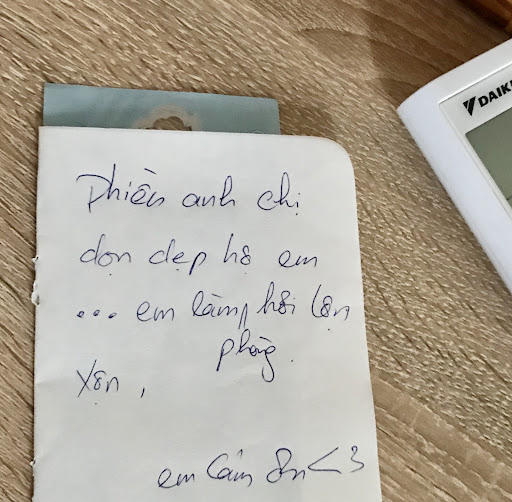 DAIK
Phiền anh chị
dọn dẹp hộ em
... em làm hơi lộn
phòng
xộn,
em cảm ơn <3